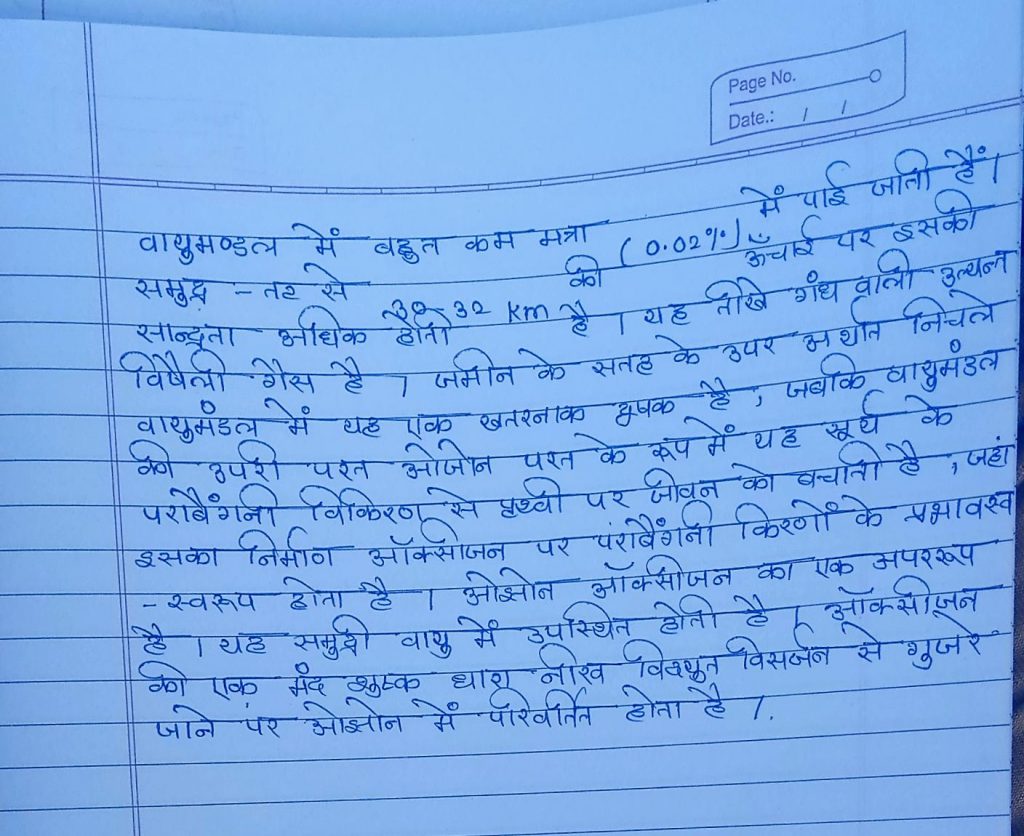 Page No.
Date.: / /
वायुमण्डल में बहुत कम मत्रा (0.02%) में पाई जाती हैं।
समुद्र - तट से 30-32 km की ऊँचाई पर इसकी
सान्द्रता अधिक होती है । यह तीखे गंध वाली अत्यन्त
विषैली गैस है । जमीन के सतह के उपर अर्थात निचले
वायुमंडल में यह एक खतरनाक दूषक है , जबकि वायुमंडल
की उपरी परत ओजोन परत के रूप में यह सूर्य के
पराबैंगनी विकिरण से पृथ्वी पर जीवन को बचाती है , जहां
इसका निर्माण ऑक्सीजन पर पराबैंगनी किरणों के प्रभावस्व
- स्वरूप होता है । ओझोन ऑक्सीजन का एक अपररूप
है । यह समुद्री वायु में उपस्थित होती है । ऑक्सीजन
की एक मंद शुष्क धारा नीरव विद्युत विसर्जन से गुजरे
जाने पर ओझोन में परिवर्तित होता है ।.